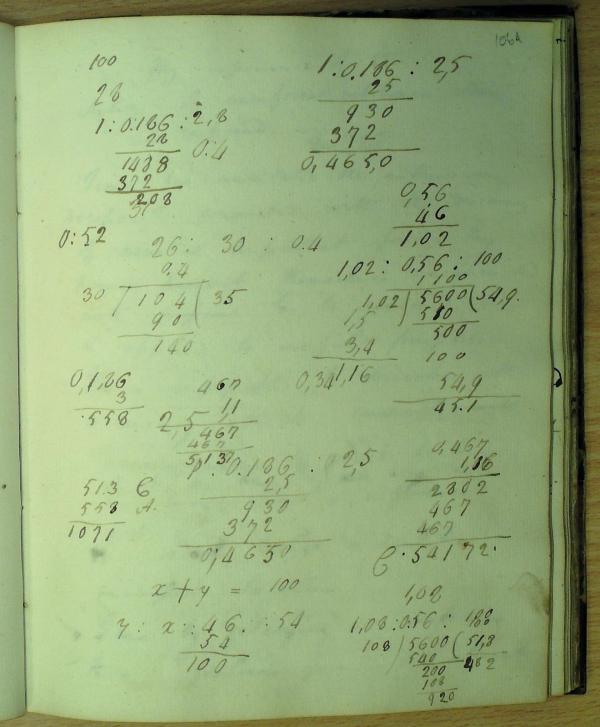 106A
100
28
1:0.186 : 2,8
28
1488
0:4
372
208
1:0.186 : 2,5
25
930
372
0,4650
0,56
46
1,02
0:52
26: 30 : 0.4
0.4
30 ) 104 ( 35
90
140
1,02: 0,56 : 100
1,100
1,02 ) 5600 ( 54,9.
510
500
100
1,5
3,4
0,34
1,16
54,9
45.1
0,186
3
.558
467
11
2,5
467
467
5,137
0.186 : 2,5
2,5
930
372
0,4650
0,467
1,16
2802
467
467
54172.
513 C
558 A.
1071
x + y = 100
y : x : 46 : 54
54
100
1,08
1,08 : 0.56 : 100
108 ) 5600 ( 51,8
540
482
200
108
920